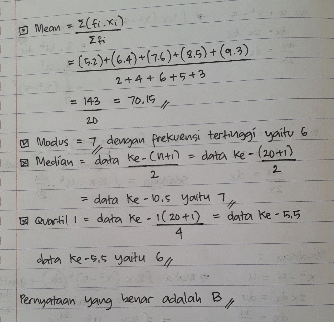 Mean = Σ(fi.xi)
Σfi
= (5.2)+(6.4)+(7.6)+(8.5)+(9.3)
2+4+6+5+3
= 143 = 70.15
20
Modus = 7, dengan frekuensi tertinggi yaitu 6
Median = data ke-(n+1) = data ke-(20+1)
2 2
= data ke-10.5 yaitu 7
Quartil 1 = data ke-1(20+1) = data ke-5,5
4
data ke-5,5 yaitu 6
Pernyataan yang benar adalah B